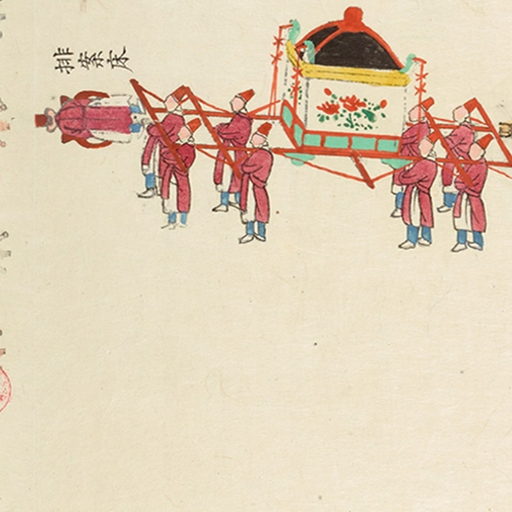 排案床